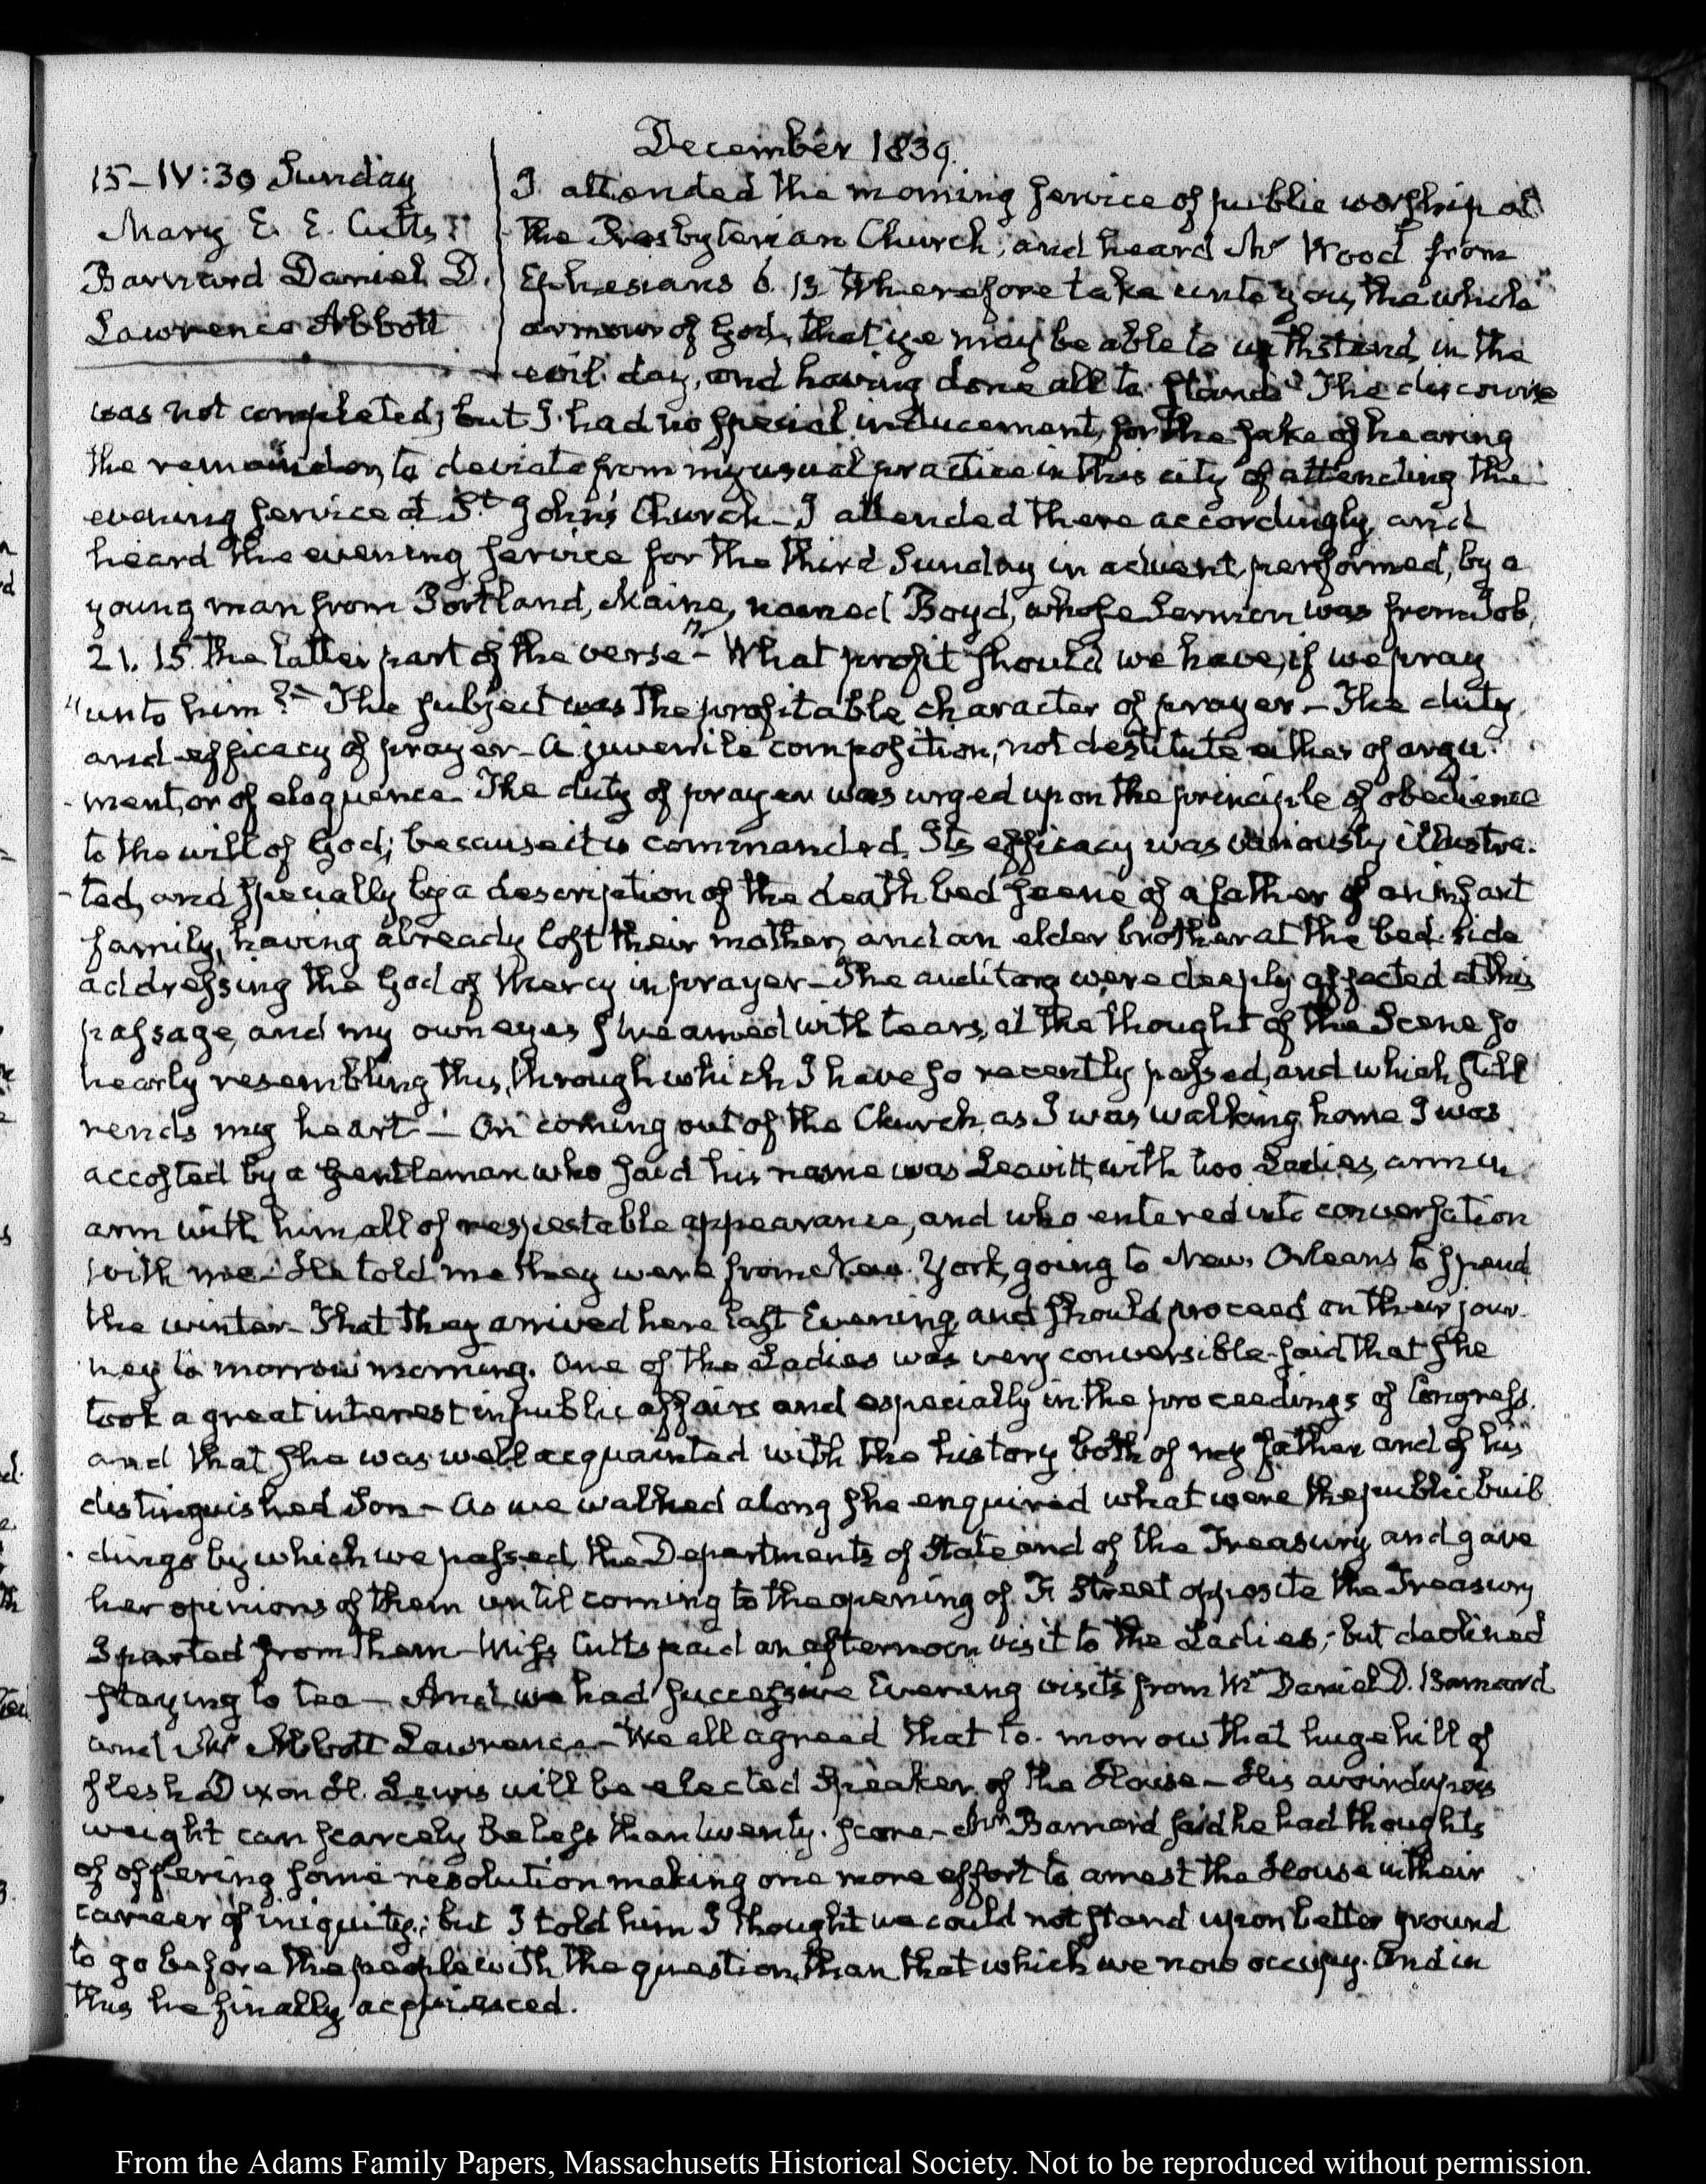 December 1839.
15–IV:30 Sunday
Mary E. E. Cutts
Barnard Daniel D.
Lawrence Abbott
I attended the morning service of public worship at
the Presbyterian Church, and heard Mr Wood from
Ephesians 6. 13 Wherefore take unto you, the whole
armour of God, that ye may be able to withstand, in the
evil day, and having done all to stand" The discourse
was not completed; but I had no special inducement, for the sake of hearing
the remainder, to deviate from my usual practice in this city of attending the
evening service at St John's Church – I attended there accordingly, and
heard the evening service for the third Sunday in advent, performed, by a
young man from Portland, Maine, named Boyd, whose Sermon was from Job,
21. 15. the latter part of the verse "– What profit should we have, if we pray
"unto him?" – The subject was the profitable character of prayer – The duty
and efficacy of prayer – a juvenile composition, not destitute either of argu-
ment, or of eloquence. The duty of prayer was urged upon the principle of obedience
to the will of God; because it is commanded. Its efficacy was variously illustra-
ted, and specially by a description of the death bed scene of a father of an infant
family, having already lost their mother, and an elder brother at the bed-side
addressing the God of Mercy in prayer – The auditory were deeply affected at this
passage, and my own eyes streamed with tears, at the thought of the Scene so
nearly resembling this, through which I have so recently passed, and which still
rends my heart – On coming out of the Church, as I was walking home I was
accosted by a gentleman who said his name was Leavitt, with two Ladies, arm in
arm with him all of respectable appearance, and who entered into conversation
with me – He told me they were from New-York, going to New-Orleans to spend
the winter – That they arrived here last Evening, and should proceed on their jour-
ney to morrow morning. One of the Ladies was very conversible – said that she
took a great interest in public affairs and especially in the proceedings of Congress.
and that she was well acquainted with the history both of my father and of his
distinguished Son – As we walked along she enquired what were the public buil-
dings by which we passed, the Departments of State and of the Treasury and gave
her opinions of them until coming to the opening of F. Street opposite the Treasury
I parted from them – Miss Cutts paid an afternoon visit to the Ladies; but declined
staying to tea – And we had successive Evening visits from Mr Daniel D. Barnard
and Mr Abbott Lawrence – We all agreed that to-morrow that huge hill of
flesh Dixon H. Lewis will be elected Speaker of the House – His avoirdupois
weight can scarcely be less than twenty-score – Mr Barnard said he had thoughts
of offering some resolution making one more effort to arrest the House in their
career of iniquity; but I told him I thought we could not stand upon better ground
to go before the people with the question, than that which we now occupy. And in
this he finally acquiesced.
From the Adams Family Papers, Massachusetts Historical Society. Not to be reproduced without permission.